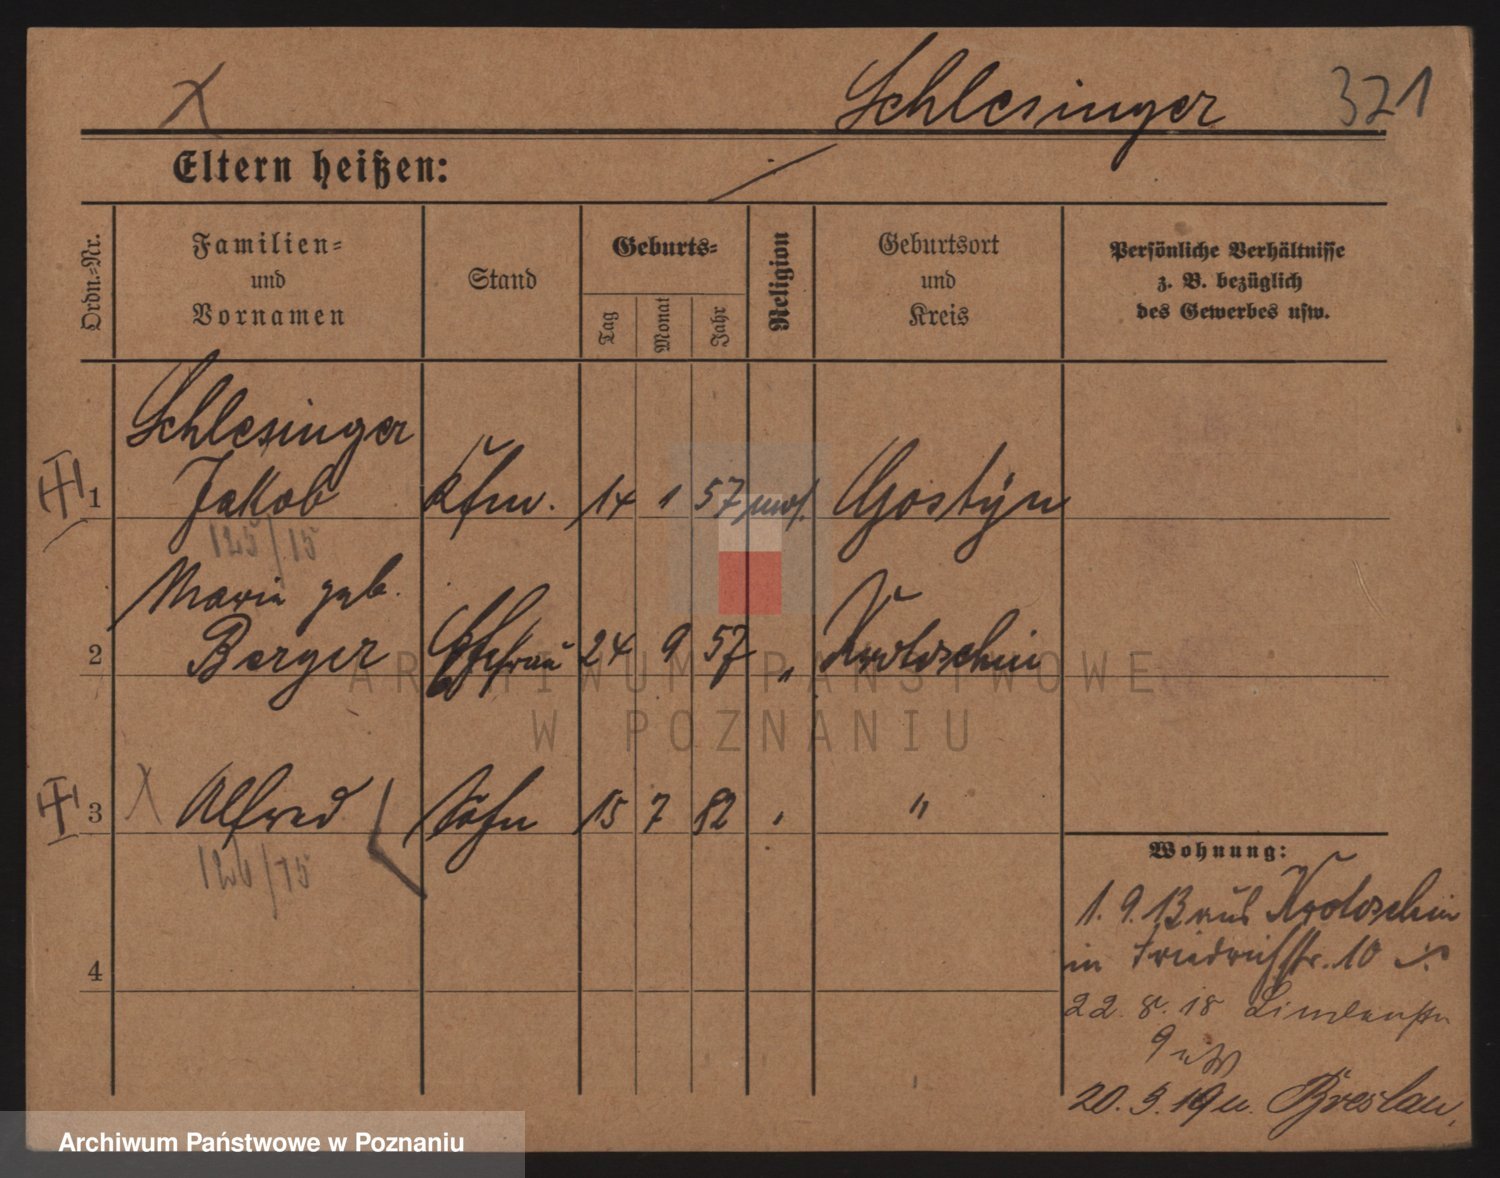 Schlesinger 371
Eltern heißen:
Ordn.=Nr.
Familien=
und
Vornamen
Stand
Geburts=
Tag
Monat
Jahr
Religion
Geburtsort
und
Kreis
Persönliche Verhältnisse
z. B. bezüglich
des Gewerbes usw.
Schlesinger
1 Jakob Kfm. 14 1 57 mos. Gostyn
125/15
Marie geb.
2 Berger Ehefrau 24 9 57 " Krotoschin
3 Alfred Sohn 15 7 82 " "
126/15
4
Wohnung:
1. 9. 13 aus Krotoschin
in Friedrichstr. 10
22. 8. 18 Lindenstr
9
20. 3. 19 n. Breslau.
ARCHIWUM PAŃSTWOWE
W POZNANIU
Archiwum Państwowe w Poznaniu